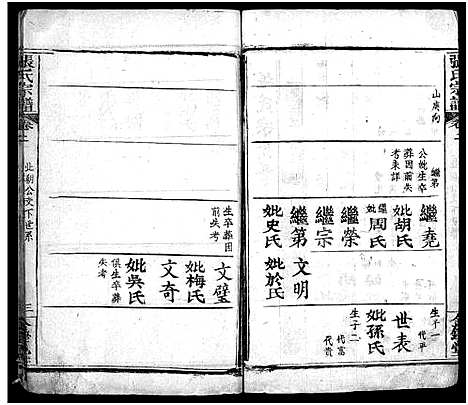 張氏宗譜
卷十
山庚向
繼第
公妣生卒
葬因前失
考未詳
繼堯
妣胡氏
繼妣周氏
繼榮
繼宗
繼第
妣史氏
世表
生子一
代平
妣孫氏
生子二
代富
代貴
文明
妣於氏
張氏宗譜
卷十
北湖公文下世系
三
生卒葬因
前失考
文璧
妣梅氏
文奇
妣吳氏
俱生卒葬
失考